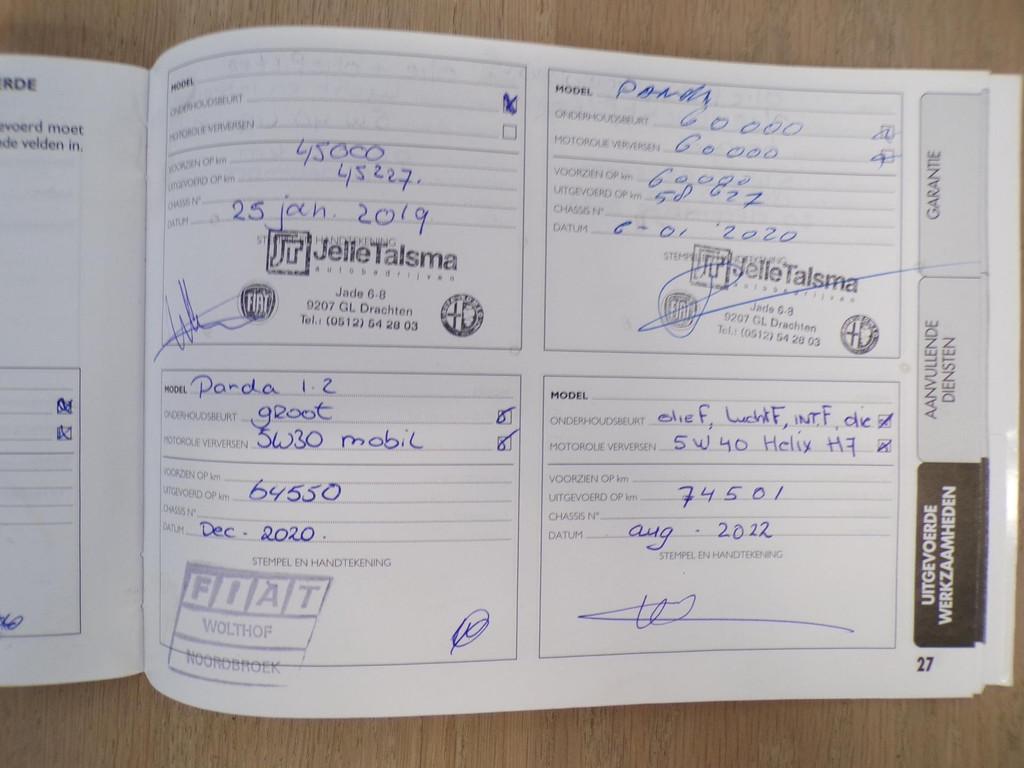 ERDE
evoerd moet
de velden in.
MODEL
ONDERHOUDSBEURT
MOTOROLIE VERVERSEN
VOORZIEN OP km 45000
UITGEVOERD OP km 45227.
CHASSIS N°
DATUM 25 jan. 2019
HANDTEKENING
JT JelleTalsma
autobedrijven
Jade 6-8
9207 GL Drachten
Tel.: (0512) 54 28 03
FIAT
MODEL Panda
ONDERHOUDSBEURT 60000
MOTOROLIE VERVERSEN 60000
VOORZIEN OP km 60000
UITGEVOERD OP km 58627
CHASSIS N°
DATUM 6-01 2020
JT JelleTalsma
autobedrijven
Jade 6-8
9207 GL Drachten
Tel.: (0512) 54 28 03
FIAT
MODEL Panda 1.2
ONDERHOUDSBEURT groot
MOTOROLIE VERVERSEN 5W30 mobil
VOORZIEN OP km
UITGEVOERD OP km 64550
CHASSIS N°
DATUM Dec. 2020.
STEMPEL EN HANDTEKENING
FIAT
WOLTHOF
NOORDBROEK
MODEL
ONDERHOUDSBEURT olieF, luchtF, INT.F, olie
MOTOROLIE VERVERSEN 5W40 Helix H7
VOORZIEN OP km
UITGEVOERD OP km 74501
CHASSIS N°
DATUM aug. 2022
STEMPEL EN HANDTEKENING
GARANTIE
AANVULLENDE
DIENSTEN
UITGEVOERDE
WERKZAAMHEDEN
27